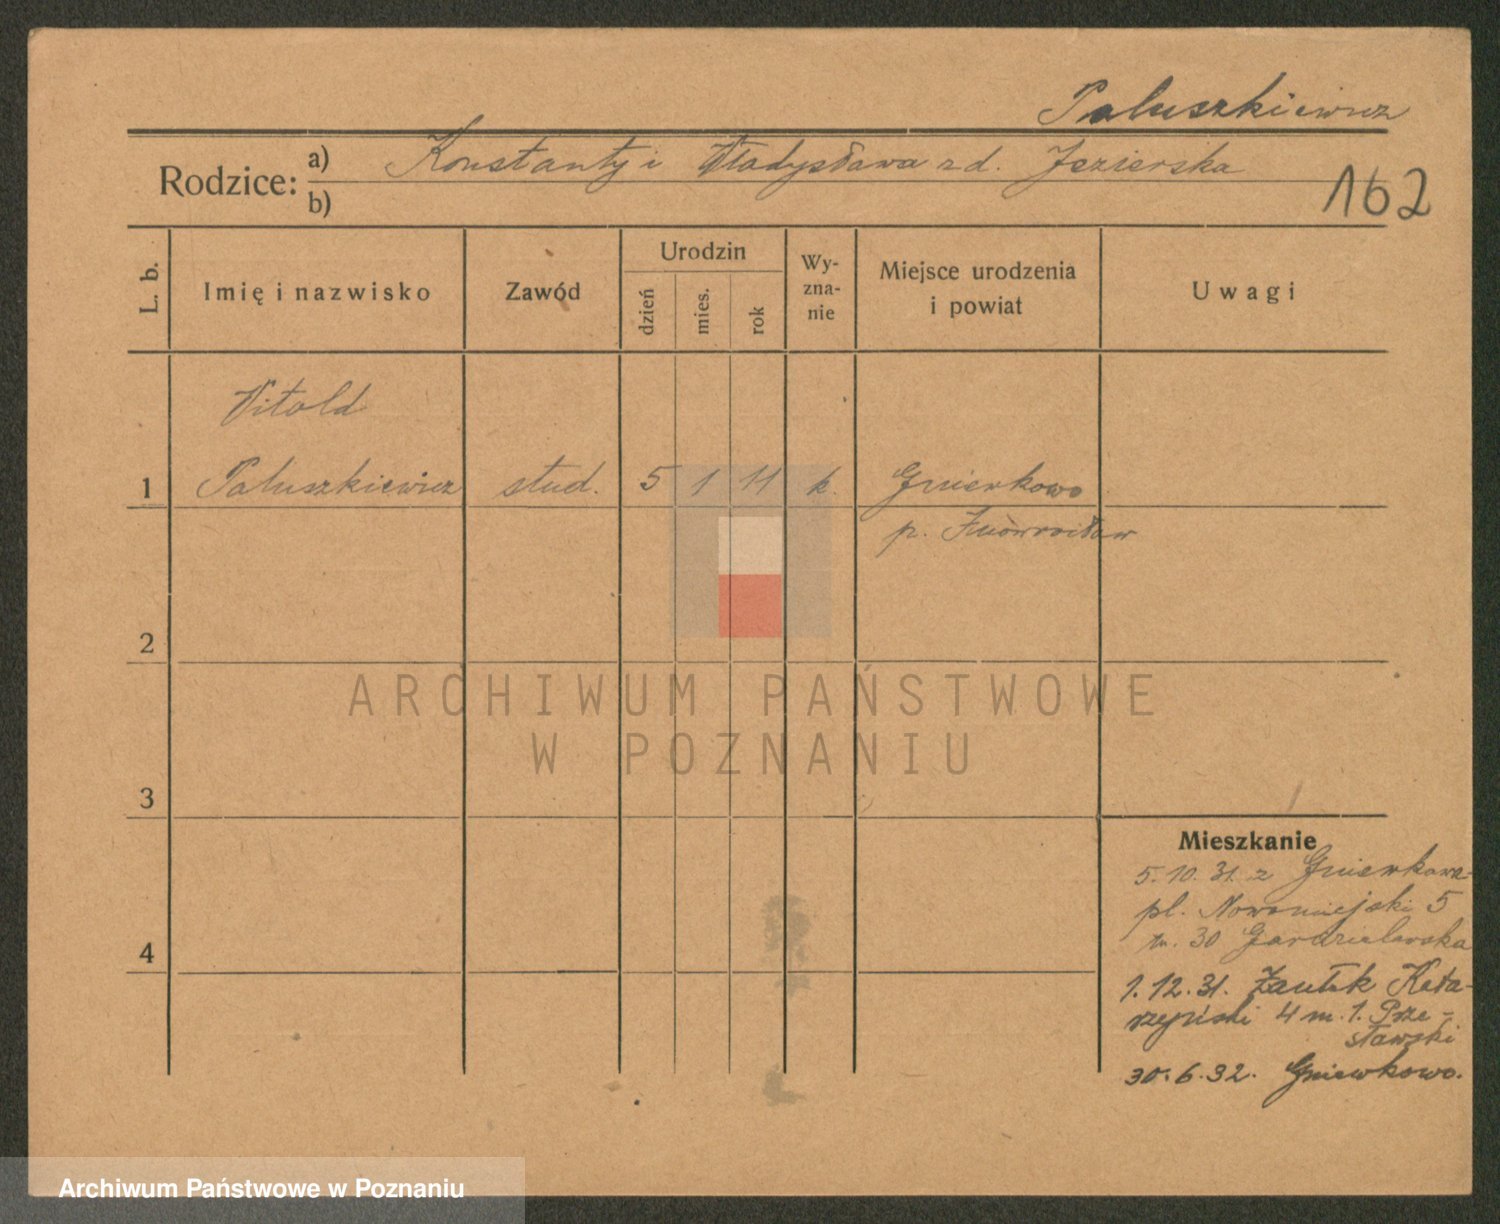 Paluszkiewicz
Rodzice:
a) Konstanty i Władysława zd. Jezierska
b)
162
L. b.
Imię i nazwisko
Zawód
Urodzin
dzień
mies.
rok
Wy-
zna-
nie
Miejsce urodzenia
i powiat
Uwagi
Witold
1 Paluszkiewicz stud. 5 1 11 k. Gniewkowo
p. Inowrocław
2
3
4
Mieszkanie
5.10.31. z Gniewkowa
pl. Nowomiejski 5
m. 30
1.12.31. Zaułek Kata-
rzyński 4 m. 1.
30.6.32. Gniewkowo.
ARCHIWUM PAŃSTWOWE
W POZNANIU
Archiwum Państwowe w Poznaniu